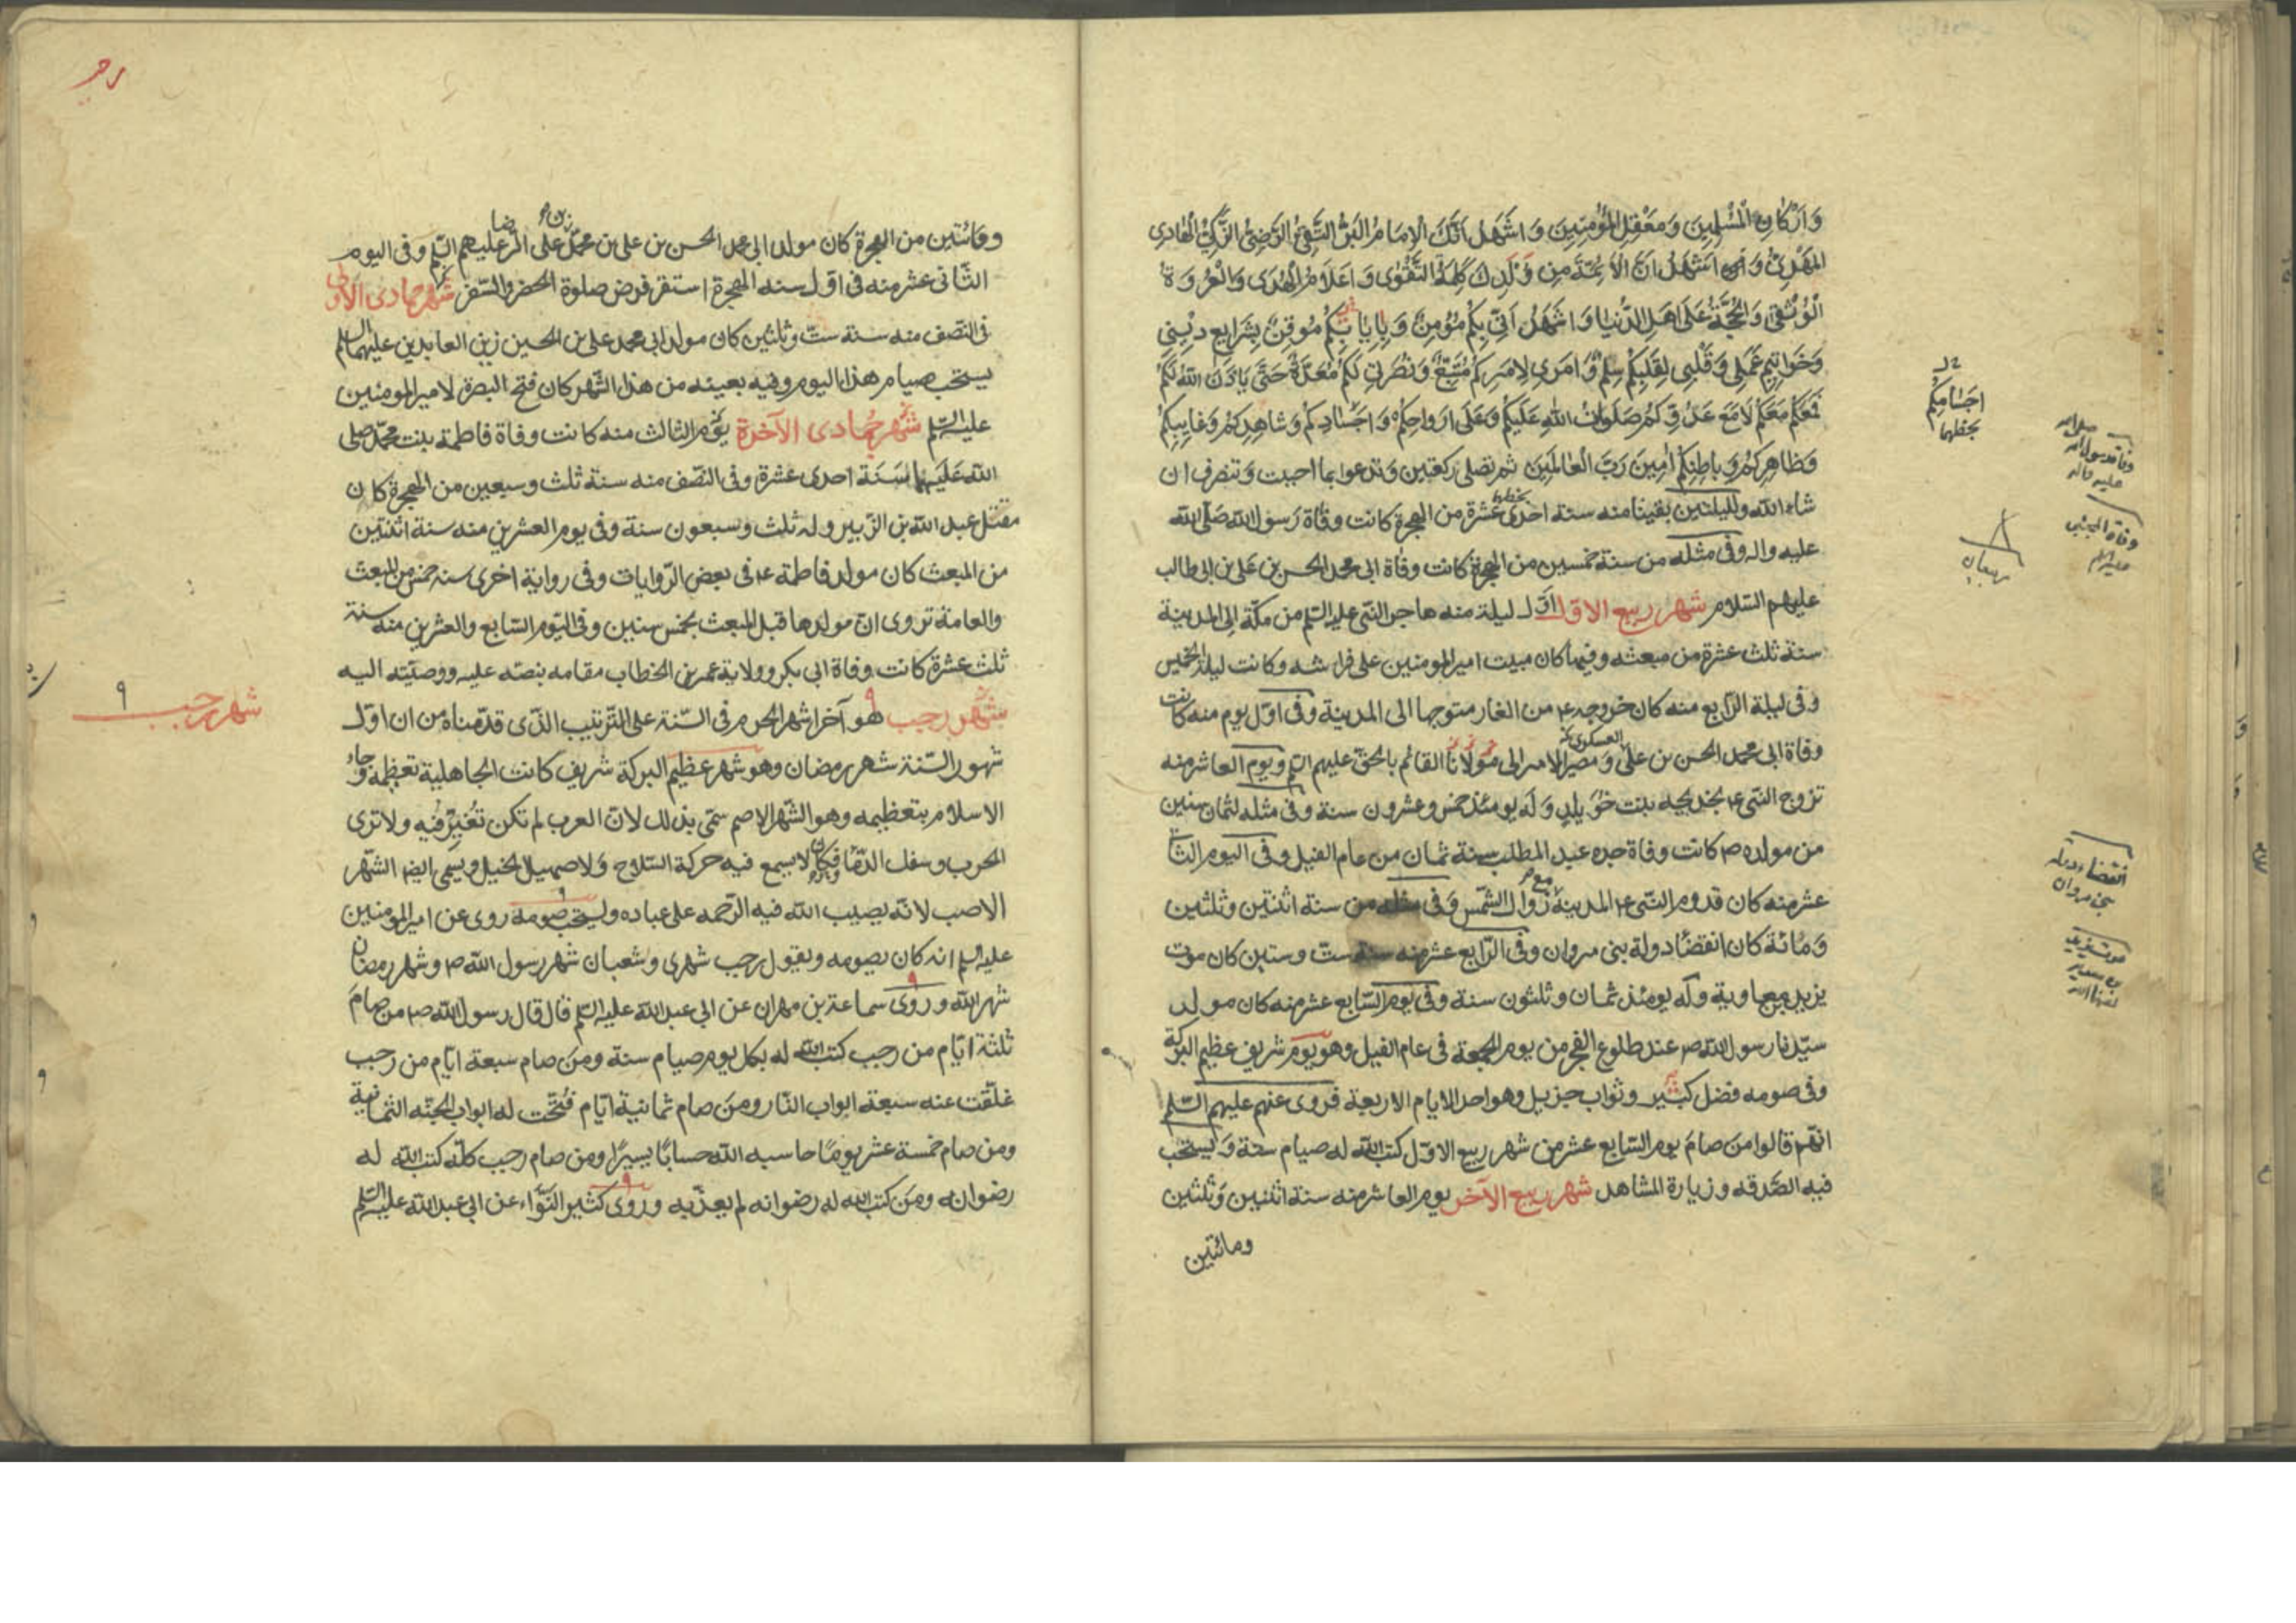 وَاَرْكَانِ الْمُسْلِمِينَ وَمَعْقِلِ الْمُؤْمِنِينَ وَاَشْهَدُ اَنَّكَ الْاِمَامُ الْبَرُّ التَّقِىُّ الرَّضِىُّ الزَّكِىُّ الْهَادِى
الْمَهْدِىُّ وَ اَشْهَدُ اَنَّ الْاَئِمَّةَ مِنْ وُلْدِكَ كَلِمَةُ التَّقْوٰى وَاَعْلَامُ الْهُدَى وَالْعُرْوَةُ
الْوُثْقٰى وَالْحُجَّةُ عَلَى اَهْلِ الدُّنْيَا وَاَشْهَدُ اَنِّى بِكُمْ مُؤْمِنٌ وَبِاِيَابِكُمْ مُوقِنٌ بِشَرَايِعِ دِيْنِى
وَخَوَاتِيمِ عَمَلِى وَقَلْبِى لِقَلْبِكُمْ سِلْمٌ وَاَمْرِى لِاَمْرِكُمْ مُتَّبِعٌ وَنُصْرَتِى لَكُمْ مُعَدَّةٌ حَتَّى يَاْذَنَ اللّٰهُ لَكُمْ
فَمَعَكُمْ مَعَكُمْ لَا مَعَ عَدُوِّكُمْ صَلَوَاتُ اللّٰهِ عَلَيْكُمْ وَعَلَى اَرْوَاحِكُمْ وَاَجْسَادِكُمْ وَشَاهِدِكُمْ وَغَايِبِكُمْ
وَظَاهِرِكُمْ وَبَاطِنِكُمْ اٰمِينَ رَبَّ الْعَالَمِينَ ثم تصلى ركعتين وتدعوا بما احببت وتنصرف ان
شاء الله ولليلتين بقيتا منه سنة احدى عشرة من الهجرة كانت وفاة رَسول الله صَلّى الله
عليه واله وفى مثله من سنة خمسين من الهجرة كانت وفاة ابى محمد الحسن بن على بن ابى طالب
عليهم السّلام شهر ربيع الاوّل اوّل ليلة منه هاجر النّبى عليه السّلم من مكّة الى المدينة
سنة ثلث عشرة من مبعثه وفيها كان مبيت امير المومنين على فراشه وكانت ليلة الخميس
وفى ليلة الرّابع منه كان خروجه ع من الغار متوجها الى المدينة وفى اوّل يوم منه كانت
وفاة ابى محمد الحسن بن على العسكرى وَمصير الامر الى مولانا القائم بالحقّ عليهم السّلم ويوم العاشر منه
تزوج النّبى ع بخديجه بنت خُوَيلدٍ وَلَه يومئذ خمس وعشرون سنة وفى مثله لثمان سنين
من مولده ص كانت وفاة جده عبد المطلب سنة ثمان من عام الفيل وفى اليوم الثانى
عشر منه كان قدوم النّبى ع المدينة مع زوال الشّمس وَفى مثله من سنة اثنتين وثلثين
وَمائة كان انقضاء دولة بنى مروان وفى الرّابع عشر منه سنة ستّ وستين كان موت
يزيد بن معاوية وله يومئذ ثمان وثلثون سنة وفى يوم السّابع عشر منه كان مولد
سيّدنا رسول الله ص عند طلوع الفجر من يوم الجمعة فى عام الفيل وهو يوم شريف عظيم البركة
وفى صومه فضل كثير وثواب جزيل وهو احد الايام الاربعة فروى عنهم عليهم السّلم
انّهم قالوا منَ صامَ يوم السّابع عشر من شهر ربيع الاوّل كتب الله له صيام سنة وَيستحب
فيه الصّدقه وزيارة المشاهد شهر ربيع الآخر يوم العاشر منه سنة اثنين وَثلثين
ومائتين
اجسامِكُمْ
بخطهما
وفاة رسول الله صلى الله
عليه واله
وفاة المجتبى
عليه السلم
انقضاء دولة
بنى مروان
ومائتين من الهجرة كان مولد ابى محمد الحسن بن على بن محمّد بن على الرضا عليهم السّلم وفى اليوم
الثّانى عشر منه فى اوّل سنه الهجرة استقر فرض صلوة الحضر والسّفر شهر جمادى الاولى
فى النّصف منه سنة ستّ وثلثين كان مولد ابى محمد على بن الحسين زين العابدين عليهما السلم
يستحب صيام هذا اليوم وفيه بعينه من هذا الشّهر كان فتح البصرة لامير المومنين
عليه السّلم شهر جُمادى الآخرة يَوم الثالث منه كانت وفاة فاطمة بنت محمّد صلى
الله عَلَيهما سَنَة احدى عشرة وفى النّصف منه سنة ثلث وسبعين من الهجرة كان
مقتل عبد الله بن الزّبير وله ثلث وسبعون سنة وفى يوم العشرين منه سنة اثنتين
من المبعث كان مولد فاطمة ع فى بعض الرّوايات وفى رواية اخرى سنه خمس من المبعث
والعامة تروى انّ مولدها قبل المبعث بخمس سنين وفى اليَوم السّابع والعشرين منه سنة
ثلث عشرة كانت وفاة ابى بكر وولاية عمر بن الخطاب مقامه بنصّه عليه ووصيّته اليه
شهر رجب هو آخر اشهر الحرم فى السّنة على التّرتيب الذّى قدّمناه من ان اوّل
شهور السّنة شهر رمضان وهو شهر عظيم البركة شريف كانت الجاهلية تعظمه وجاء
الاسلام بتعظيمه وهو الشّهر الاصم سمّى بذلك لانّ العرب لم تكن تُغِيرُ فيه ولا ترى
الحرب وسفك الدّماء فكان لا يسمع فيه حركة السّلاح وَلا صهيل الخيل ويسمى ايضا الشّهر
الاصب لانّه يصيب الله فيه الرّحمه على عباده ويستحب صومه روى عن امير المؤمنين
عليه السلم انه كان يصومه ويقول رجب شهرى وشعبان شهر رسول الله ص وشهر رمضان
شهر الله وروى سماعة بن مهران عن ابى عبد الله عليه السّلم قال قال رسول الله ص من صامَ
ثلثة ايّام من رجب كتب الله له بكل يوم صيام سنة ومنَ صام سبعة ايّام من رجب
غلّقت عنه سبعة ابواب النّار ومنَ صام ثمانية ايّام فُتحت له ابواب الجنّه الثمانية
ومن صام خمسة عشر يومًا حاسبه الله حسابًا يسيرًا ومن صام رجب كلّه كتب الله له
رضوانه ومَن كتب الله له رضوانه لم يعذّبه وروى كثير النَّوّاء عن ابى عبد الله عليه السّلم
شهر رجب